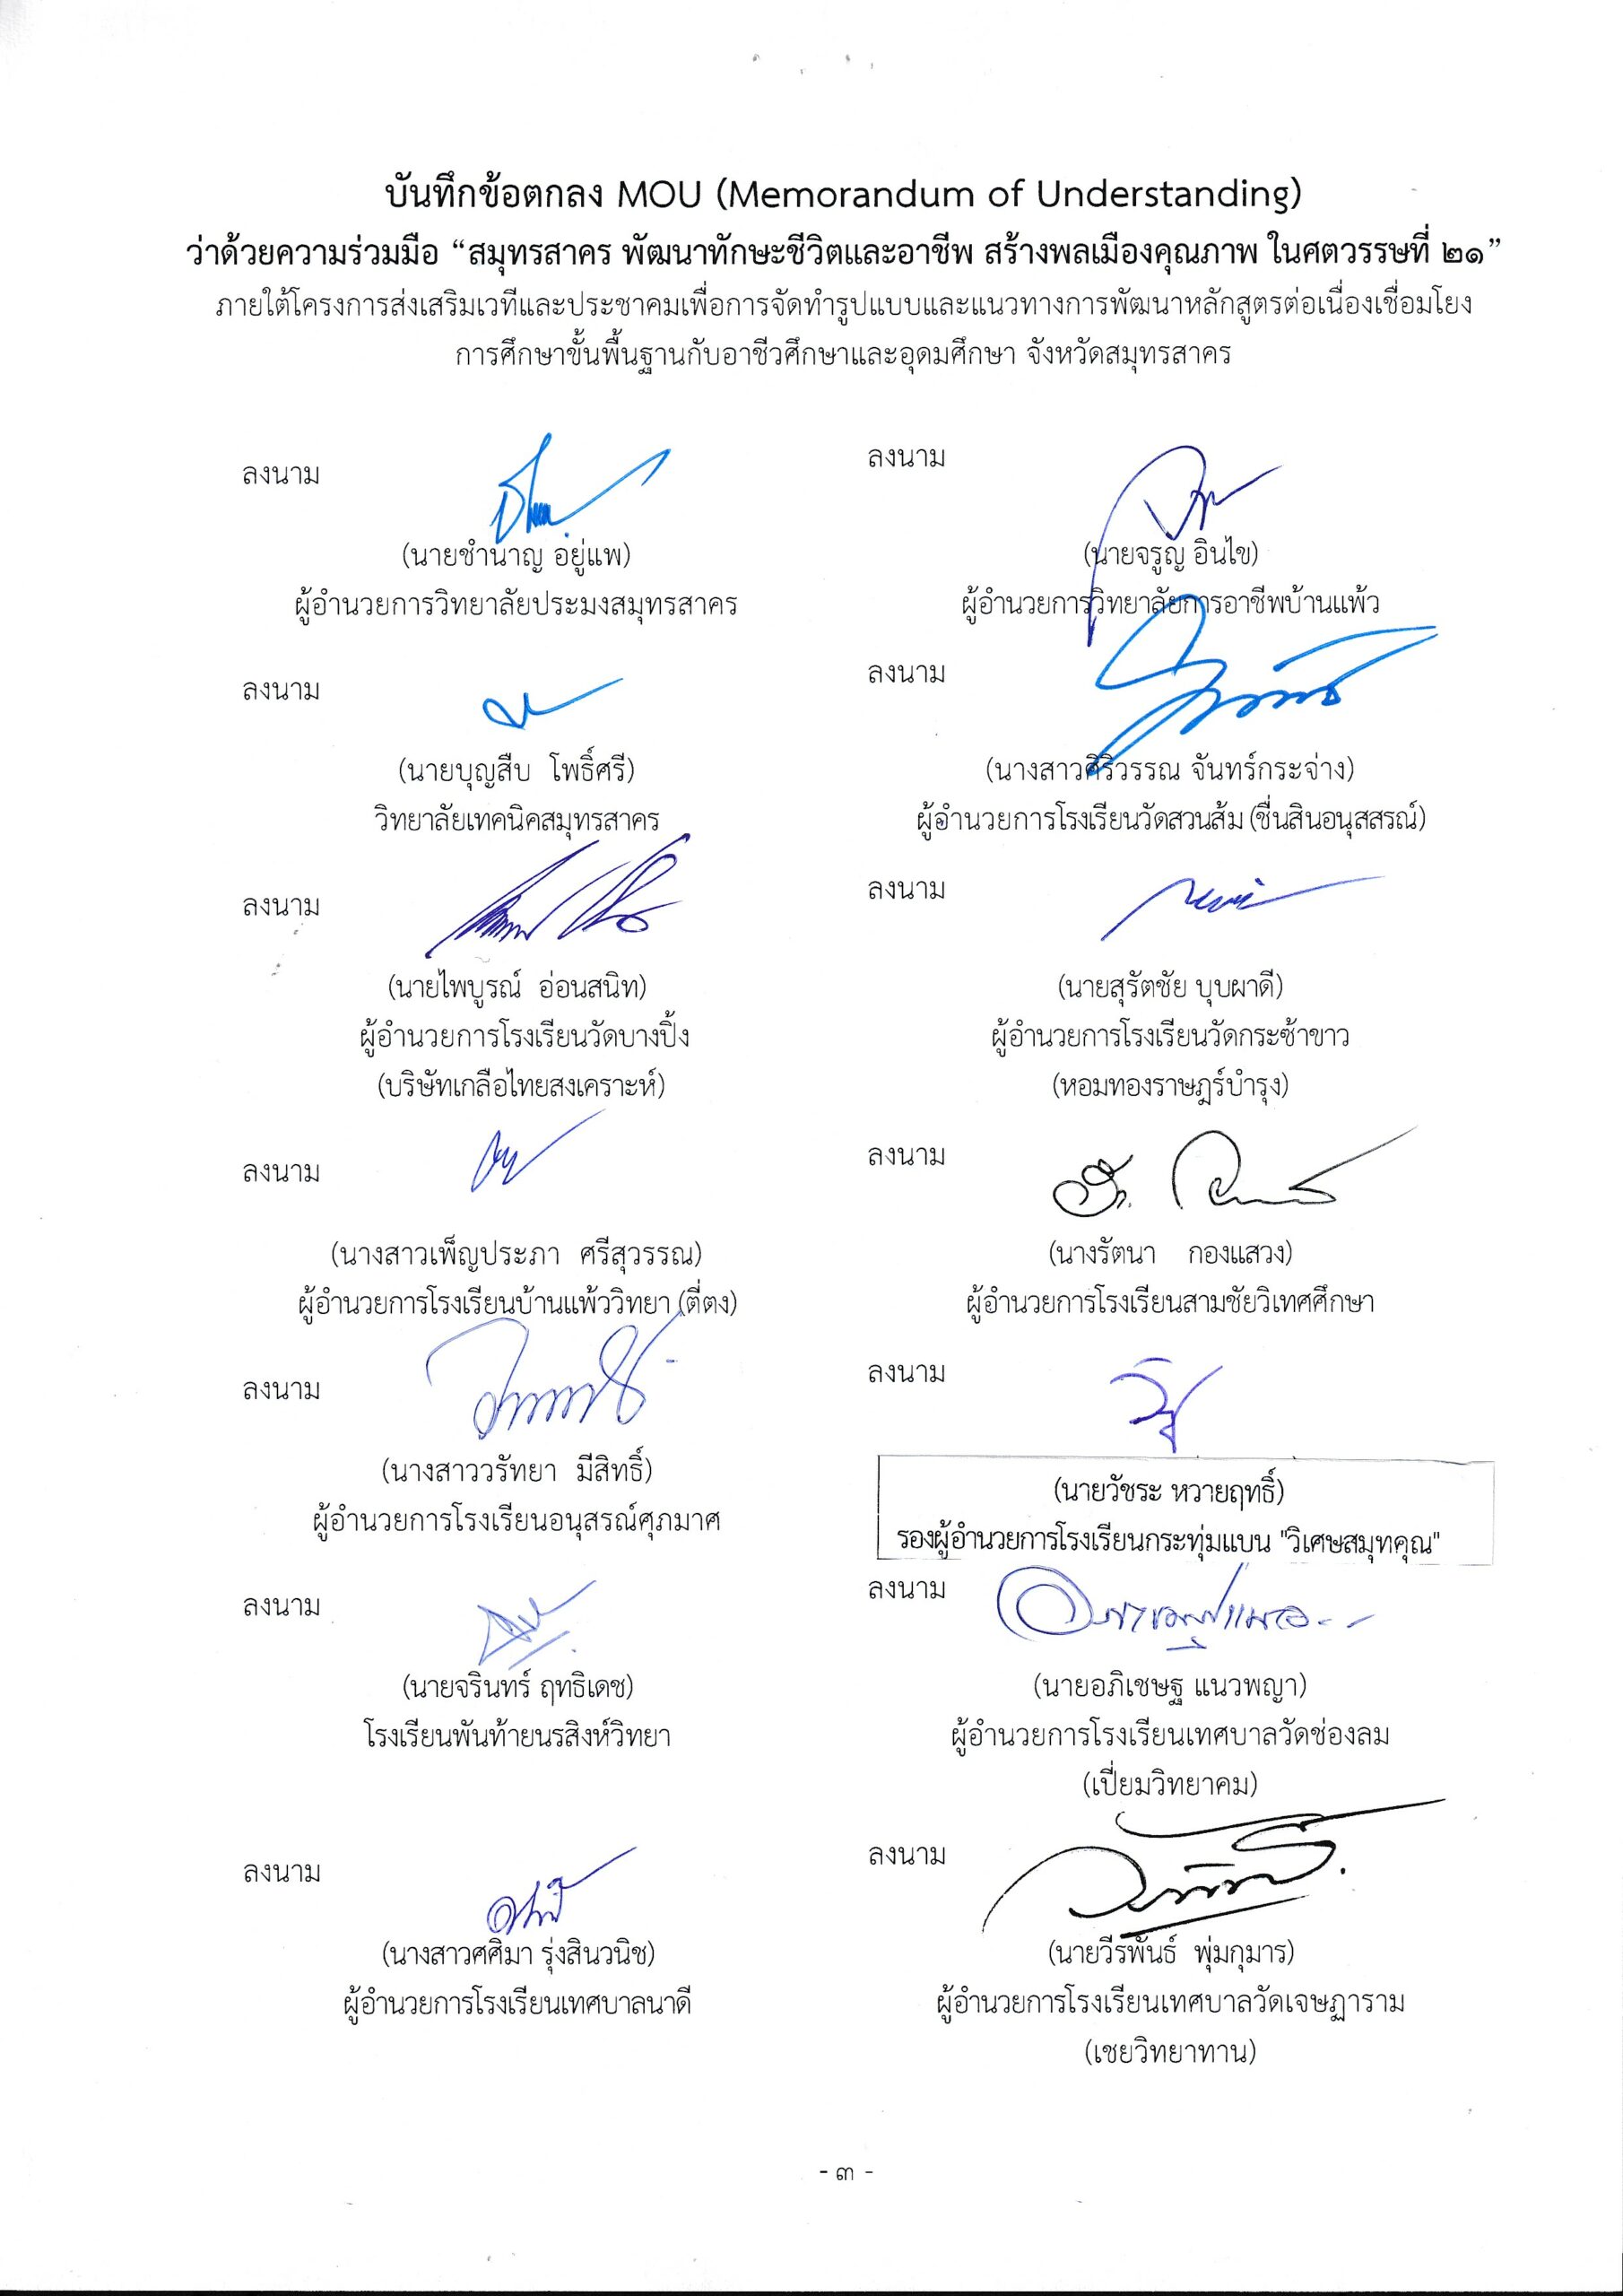 บันทึกข้อตกลง MOU (Memorandum of Understanding)
ว่าด้วยความร่วมมือ “สมุทรสาคร พัฒนาทักษะชีวิตและอาชีพ สร้างพลเมืองคุณภาพ ในศตวรรษที่ ๒๑”
ภายใต้โครงการส่งเสริมเวทีและประชาคมเพื่อการจัดทำรูปแบบและแนวทางการพัฒนาหลักสูตรต่อเนื่องเชื่อมโยง
การศึกษาขั้นพื้นฐานกับอาชีวศึกษาและอุดมศึกษา จังหวัดสมุทรสาคร
ลงนาม
(นายชำนาญ อยู่แพ)
ผู้อำนวยการวิทยาลัยประมงสมุทรสาคร
ลงนาม
(นายจรูญ อินไข)
ผู้อำนวยการวิทยาลัยการอาชีพบ้านแพ้ว
ลงนาม
(นายบุญสืบ โพธิ์ศรี)
วิทยาลัยเทคนิคสมุทรสาคร
ลงนาม
(นางสาวศิริวรรณ จันทร์กระจ่าง)
ผู้อำนวยการโรงเรียนวัดสวนส้ม (ชื่นสินอนุสสรณ์)
ลงนาม
(นายไพบูรณ์ อ่อนสนิท)
ผู้อำนวยการโรงเรียนวัดบางปิ้ง
(บริษัทเกลือไทยสงเคราะห์)
ลงนาม
(นายสุรัตชัย บุบผาดี)
ผู้อำนวยการโรงเรียนวัดกระซ้าขาว
(หอมทองราษฎร์บำรุง)
ลงนาม
(นางสาวเพ็ญประภา ศรีสุวรรณ)
ผู้อำนวยการโรงเรียนบ้านแพ้ววิทยา (ตี่ตง)
ลงนาม
(นางรัตนา กองแสวง)
ผู้อำนวยการโรงเรียนสามชัยวิเทศศึกษา
ลงนาม
(นางสาววรัทยา มีสิทธิ์)
ผู้อำนวยการโรงเรียนอนุสรณ์ศุภมาศ
ลงนาม
(นายวัชระ หวายฤทธิ์)
รองผู้อำนวยการโรงเรียนกระทุ่มแบน "วิเศษสมุทคุณ"
ลงนาม
(นายจรินทร์ ฤทธิเดช)
โรงเรียนพันท้ายนรสิงห์วิทยา
ลงนาม
(นายอภิเชษฐ แนวพญา)
ผู้อำนวยการโรงเรียนเทศบาลวัดช่องลม
(เปี่ยมวิทยาคม)
ลงนาม
(นางสาวศศิมา รุ่งสินวนิช)
ผู้อำนวยการโรงเรียนเทศบาลนาดี
ลงนาม
(นายวีรพันธ์ พุ่มกุมาร)
ผู้อำนวยการโรงเรียนเทศบาลวัดเจษฏาราม
(เชยวิทยาทาน)
- ๓ -